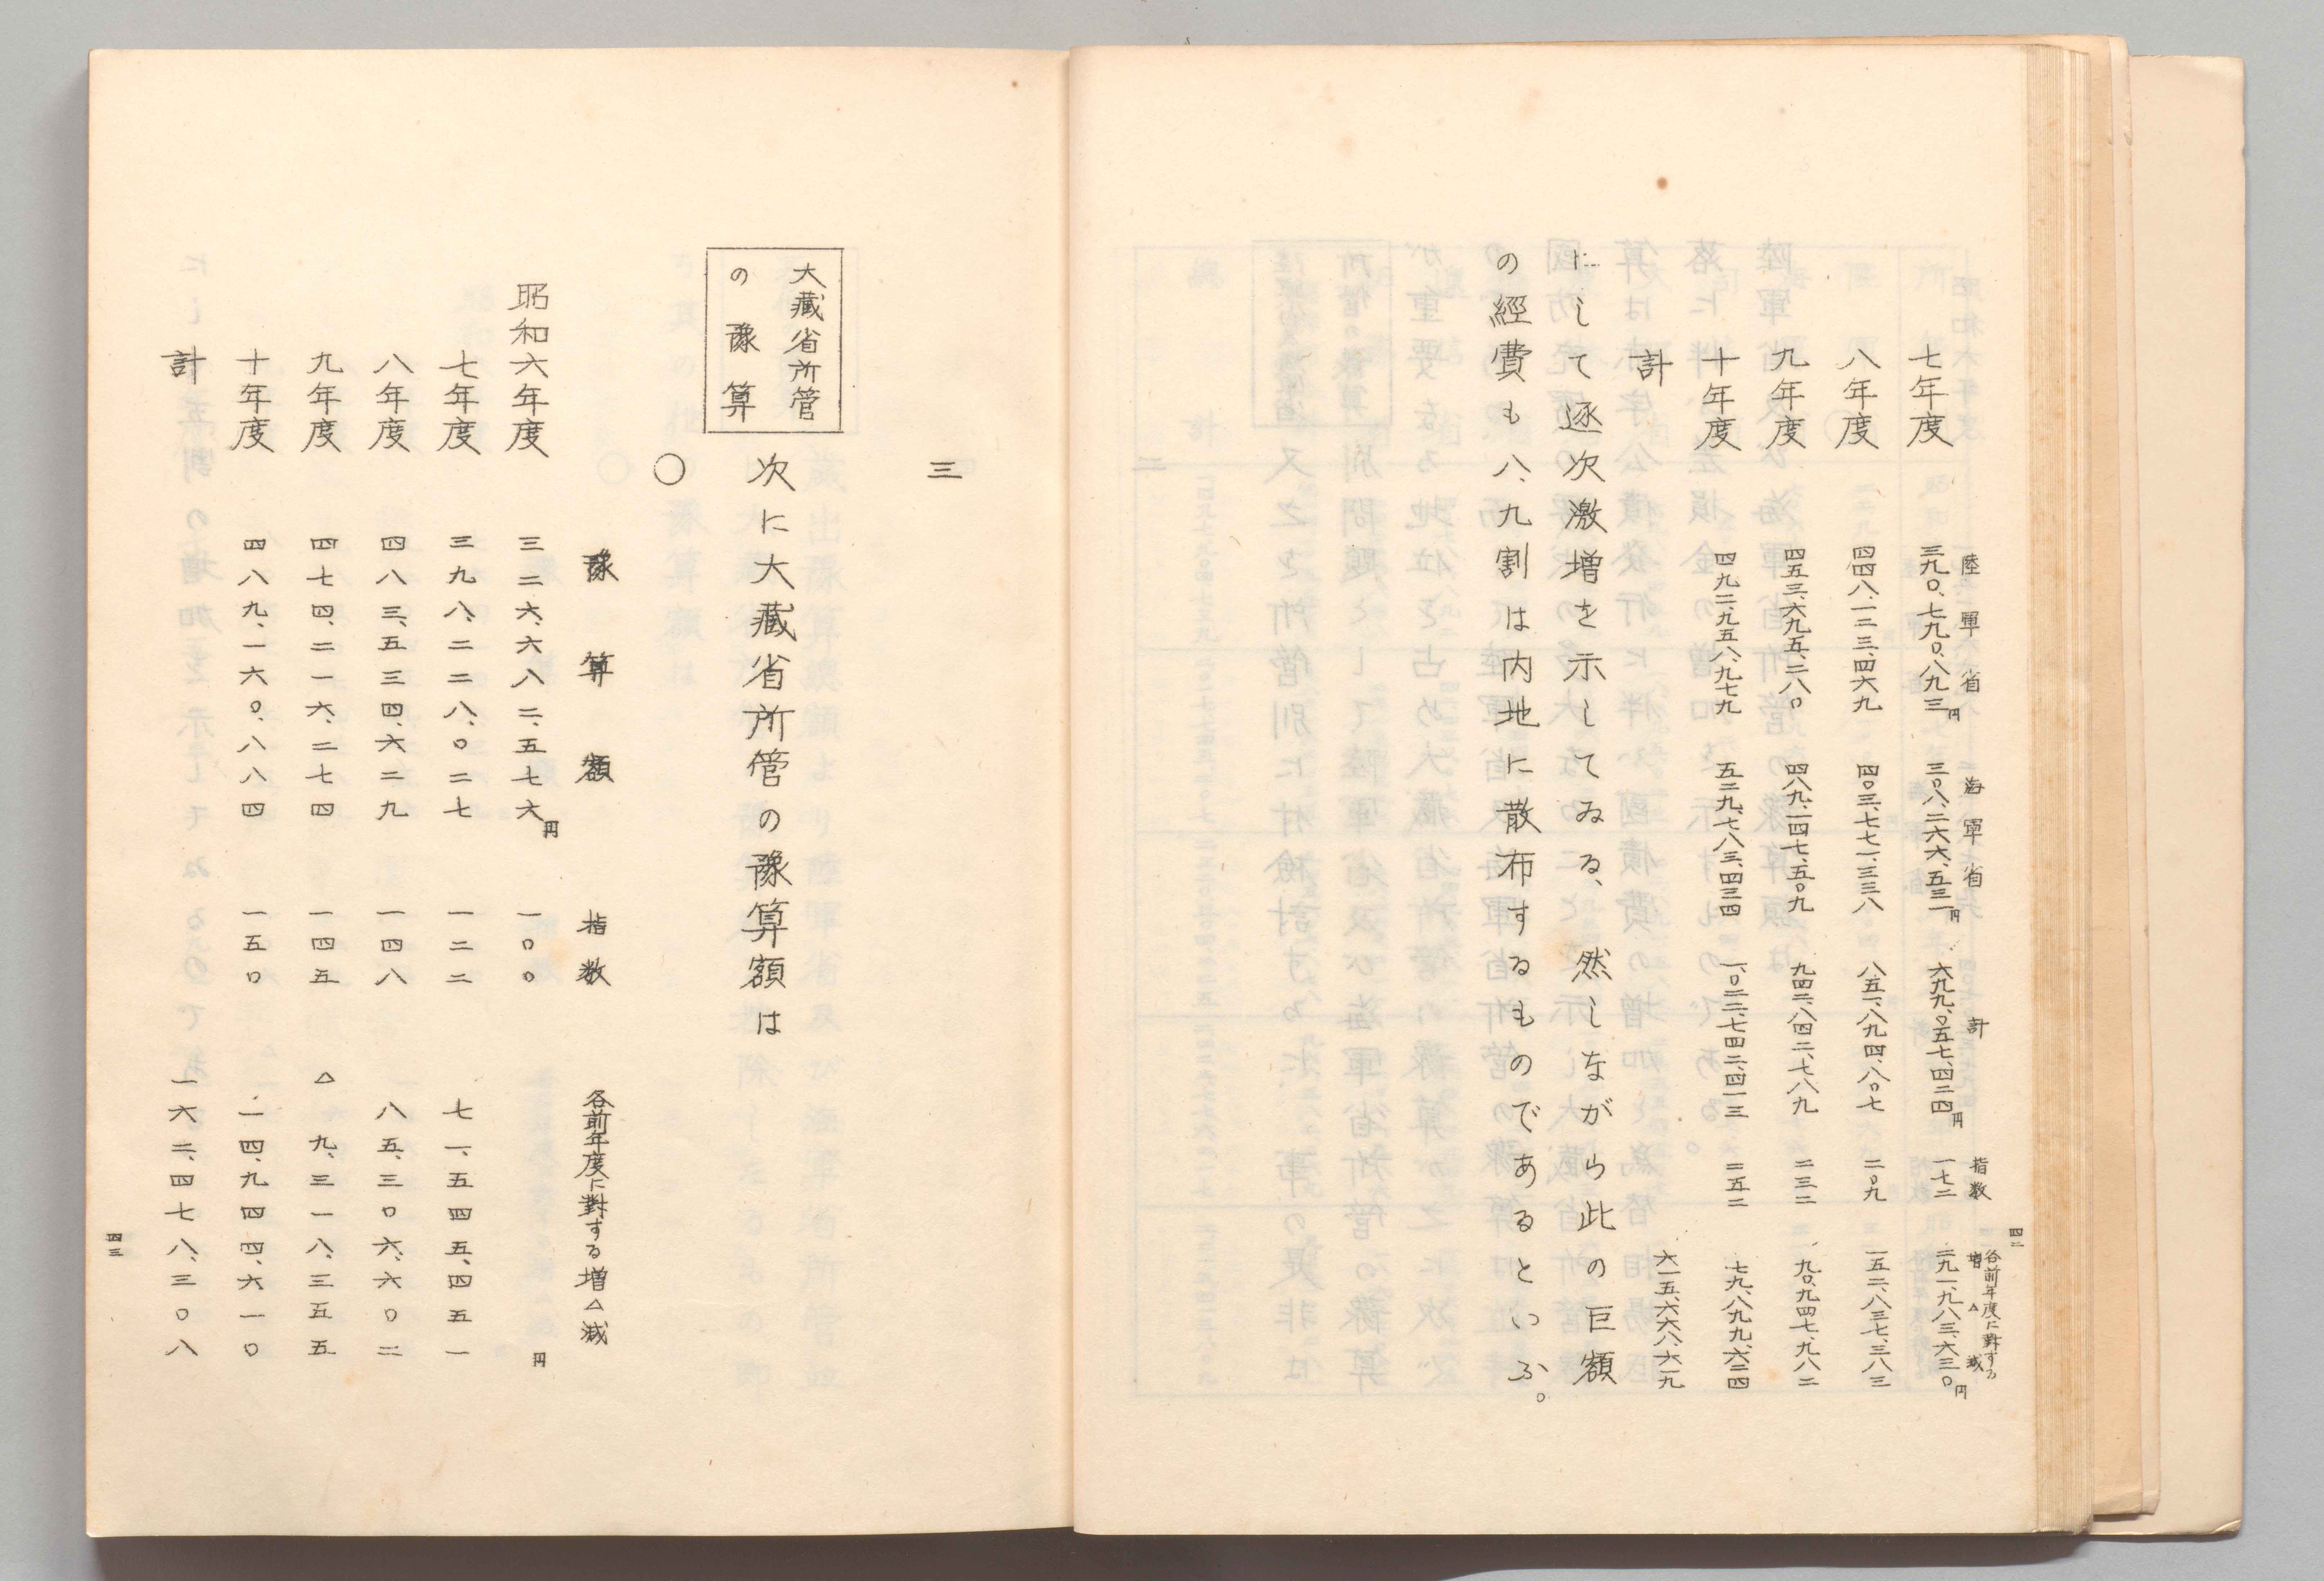 四二
陸軍省 海軍省 計 指数 各前年度に對する増△減
七年度 三九〇、七九〇、八九三円 三〇八、二六六、五三一円 六九九、〇五七、四二四円 一七二 二九一、九八三、六三〇円
八年度 四四八、一二三、四六九 四〇三、七七一、三三八 八五一、八九四、八〇七 二〇九 一五二、八三七、三八三
九年度 四五三、六九五、二八〇 四八九、一四七、五〇九 九四二、八四二、七八九 二三二 九〇、九四七、九八二
十年度 四九二、九五八、九七九 五二九、七八三、四三四 一、〇二二、七四二、四一三 二五二 七九、八九九、六二四
計 六一五、六六八、六一九
にして逐次激増を示してゐる、然しながら此の巨額
の經費も八、九割は内地に散布するものであるといふ。
三
大藏省所管
の豫算
次に大藏省所管の豫算額は
〇
豫算額 指数 各前年度に對する増△減
昭和六年度 三二六、六八二、五七六円 一〇〇 円
七年度 三九八、二二八、〇二七 一二二 七一、五四五、四五一
八年度 四八三、五三四、六二九 一四八 八五、三〇六、六〇二
九年度 四七四、二一六、二七四 一四五 △九、三一八、三五五
十年度 四八九、一六〇、八八四 一五〇 一四、九四四、六一〇
計 一六二、四七八、三〇八
四三